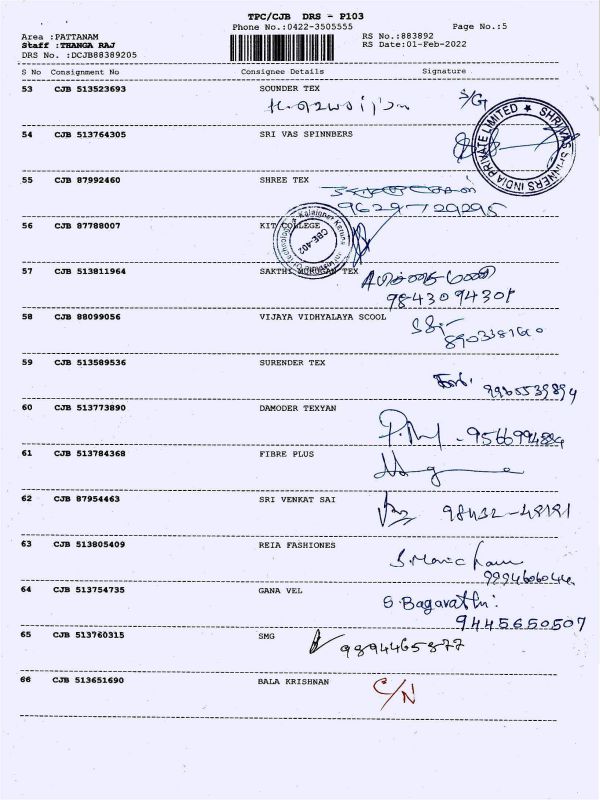 TPC/CJB DRS - P103
Phone No.:0422-3505555 Page No.:5
Area :PATTANAM RS No.:883892
Staff :THANGA RAJ RS Date:01-Feb-2022
DRS No. :DCJB88389205
S No Consignment No Consignee Details Signature
53 CJB 513523693 SOUNDER TEX
54 CJB 513764305 SRI VAS SPINNBERS
SHRIVAS SPINNERS INDIA PRIVATE LIMITED ★
55 CJB 87992460 SHREE TEX
9629729295
56 CJB 87788007 KIT COLLEGE
CBE-402
57 CJB 513811964 SAKTHI MURUGAN TEX
9843094301
58 CJB 88099056 VIJAYA VIDHYALAYA SCOOL
59 CJB 513589536 SURENDER TEX
60 CJB 513773890 DAMODER TEXYAN
61 CJB 513784368 FIBRE PLUS
62 CJB 87954463 SRI VENKAT SAI
98432-48181
63 CJB 513805409 REIA FASHIONES
64 CJB 513754735 GANA VEL
S. Bagavathi
9445650507
65 CJB 513760315 SMG
9894465877
66 CJB 513651690 BALA KRISHNAN C/N